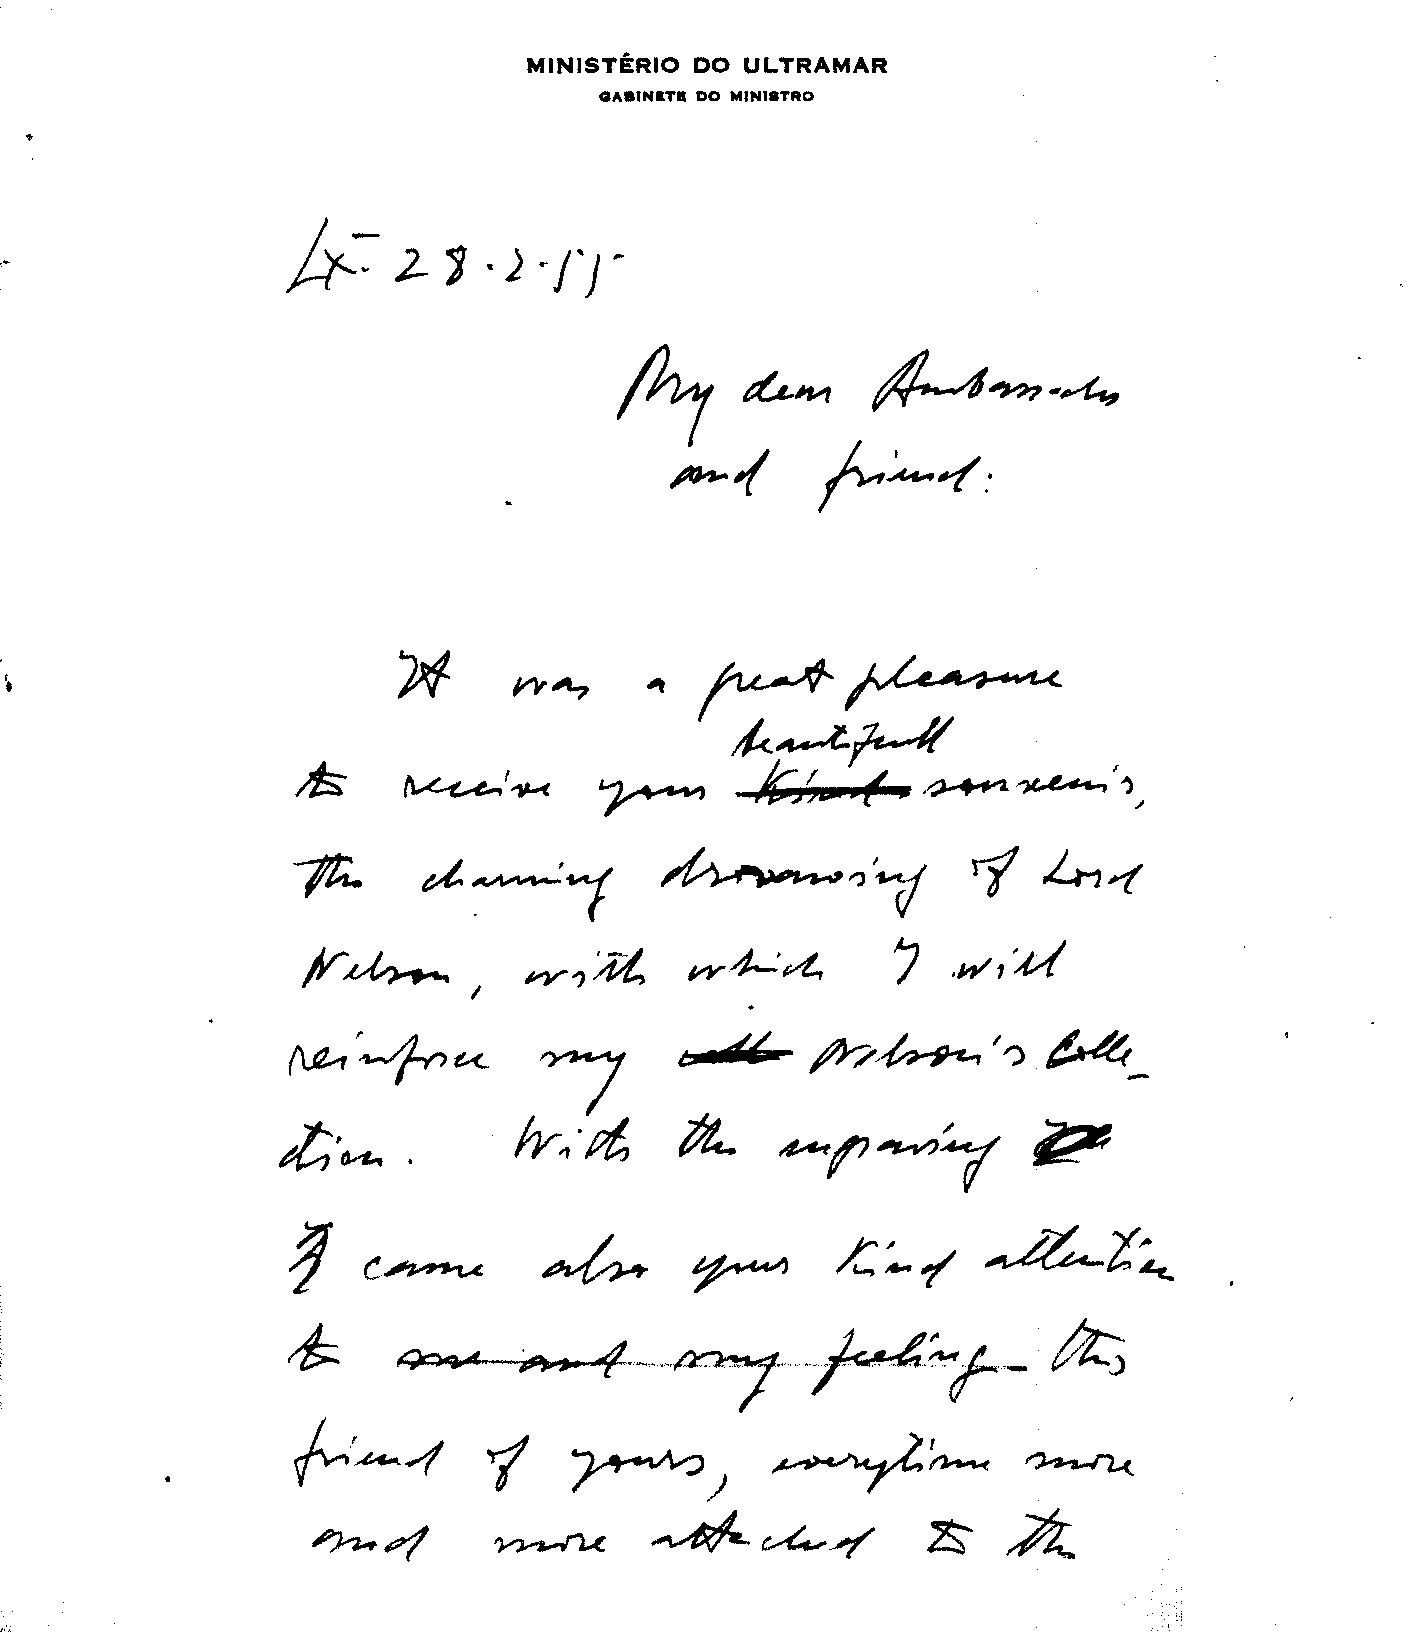 MINISTÉRIO DO ULTRAMAR
GABINETE DO MINISTRO
Lx. 28.2.55
My dear Ambassador
and friend:
It was a great pleasure
beautifull
to receive your kind souvenir,
the charming drawing of Lord
Nelson, with which I will
reinforce my Nelson's Colle-
ction. With the engraving
came also your kind attention
to me and my feeling this
friend of yours, everytime more
and more attached to the